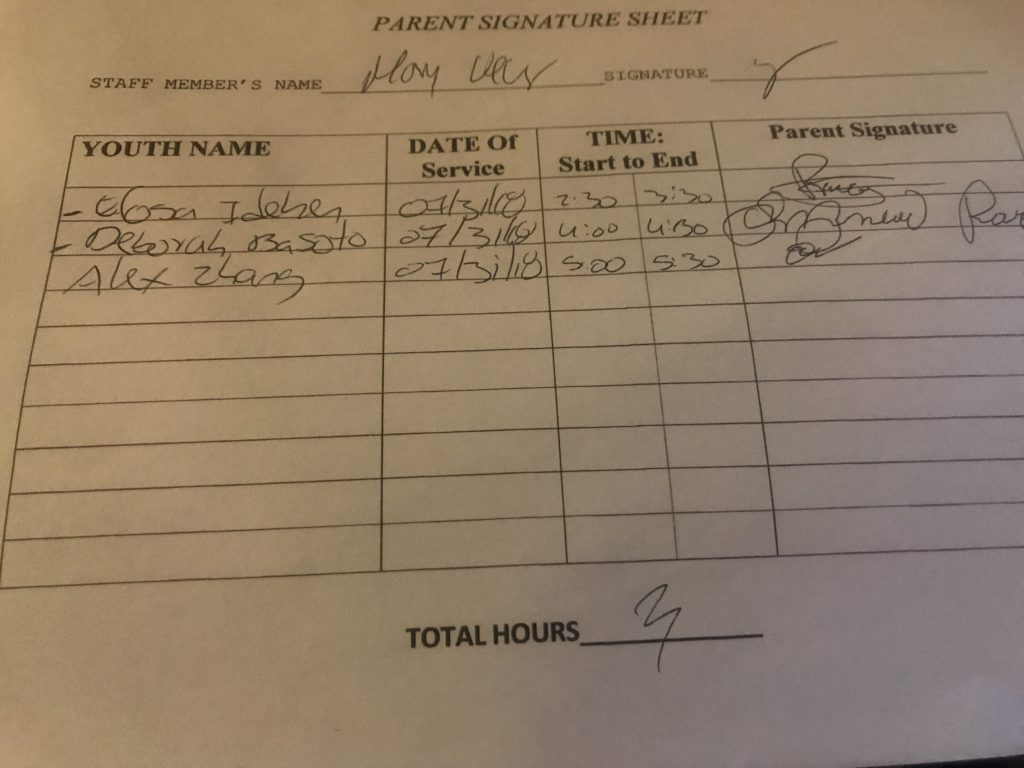 PARENT SIGNATURE SHEET
STAFF MEMBER'S NAME SIGNATURE
YOUTH NAME DATE Of Service TIME: Start to End Parent Signature
- Efosa Idehen 07/31/18 2:30 3:30
- Deborah Basoto 07/31/18 4:00 4:30
Alex Zhang 07/31/18 5:00 5:30
TOTAL HOURS